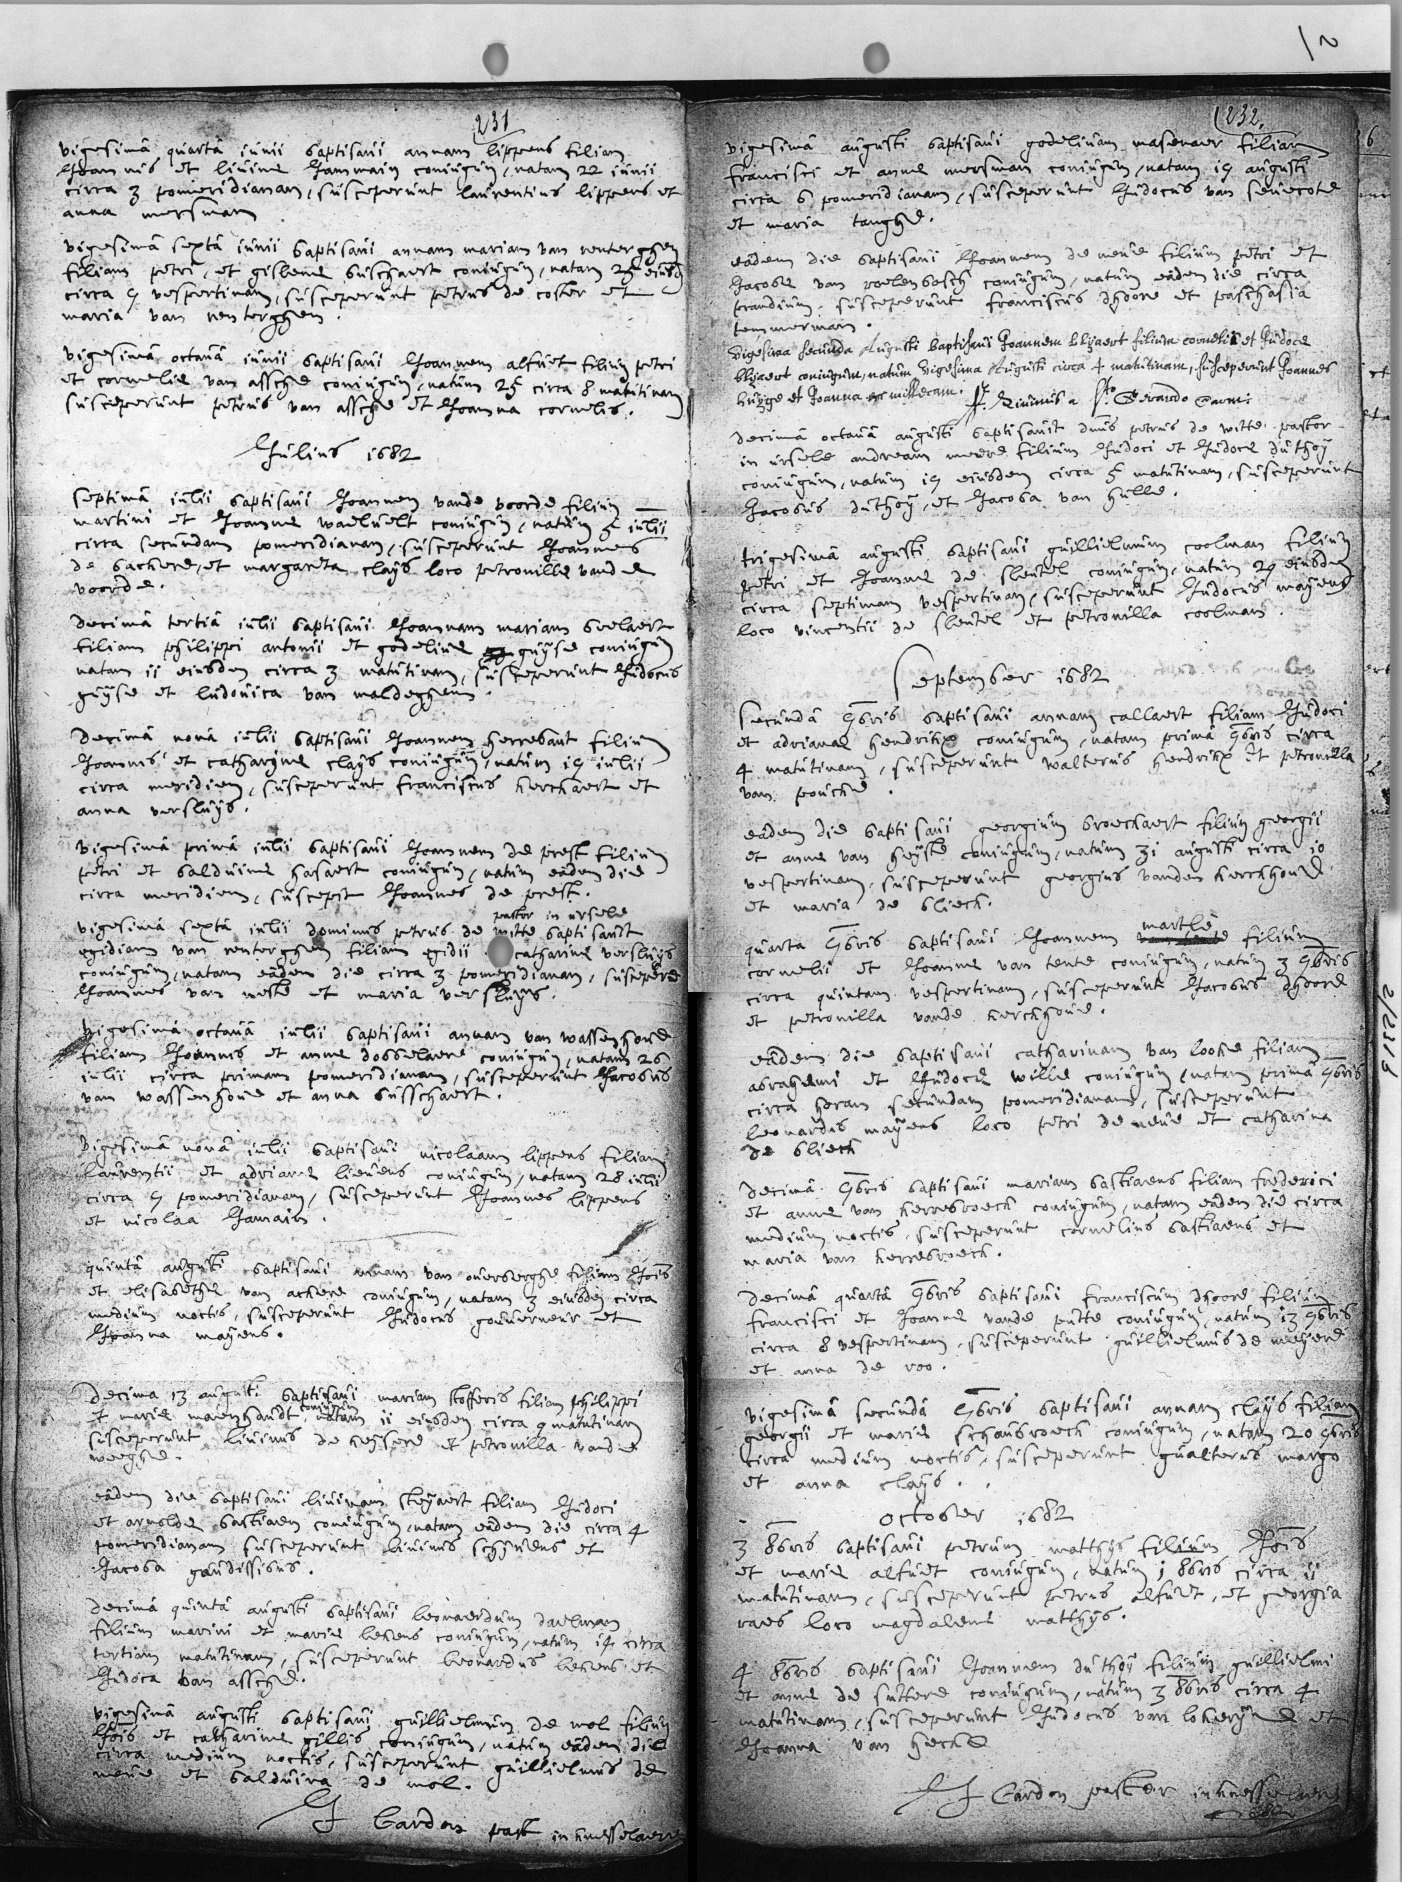 231
vigesimâ quartâ iunii baptisavi annam lippens filiam
Joannis et livine Hammain coniugum, natam 22 iunii
circa 3 pomeridianam, susceperunt laurentius lippens et
anna mersman
vigesimâ sextâ iunii baptisavi annam mariam van renterghem
filiam petri, et gislene busschaert coniugum, natam 25 eiusd
circa 9 vespertinam, susceperunt petrus de coster et
maria van renterghem.
vigesimâ octavâ iunii baptisavi Joannem alfuet filium petri
et cornelie van assche coniugum, natum 25 circa 8 matutinam
susceperunt petrus van assche et Joanna cornelis.
Julius 1682
septimâ iulii baptisavi Joannem vande voorde filium
martini et Joanne waelvelt coniugum, natum 5 iulii
circa secundam pomeridianam, susceperunt Joannes
de backere, et margareta clays loco petronille vande
voorde.
decimâ tertiâ iulii baptisavi Joannam mariam beelaert
filiam philippi antonii et godeline guyse coniugum
natam ii eiusdem circa 3 matutinam, susceperunt Judocus
guyse et ludovica van maldeghem.
decimâ nonâ iulii baptisavi Joannem herrebaut filium
Joannis et catharine clays coniugum, natum 19 iulii
circa meridiem, susceperunt franciscus kerckaert et
anna versluys.
vigesimâ primâ iulii baptisavi Joannem de prest filium
petri et balduine hasaert coniugum, natum eâdem die
circa meridiem, suscepit Joannes de prest.
pastor in ursele
vigesimâ sextâ iulii dominus petrus de witte baptisavit
egidiam van renterghem filiam egidii catharine versluys
coniugum, natam eâdem die circa 3 pomeridianam, suscepere
Joannes van neste et maria versluys.
vigesimâ octavâ iulii baptisavi annam van wassenhove
filiam Joannis et anne dosselaere coniugum, natam 26
iulii circa primam pomeridianam, susceperunt Jacobus
van wassenhove et anna busschaert.
vigesimâ nonâ iulii baptisavi nicolaam lippens filiam
laurentii et adriane lievens coniugum, natam 28 iulii
circa 9 pomeridianam, susceperunt Joannes lippens
et nicolaa Hamain.
quintâ augusti baptisavi annam van overberghe filiam Jois
et elisabethe van ackere coniugum, natam 3 eiusdem circa
medium noctis, susceperunt Judocus gouverneur et
Joanna mayens.
decima 13 augusti baptisavi mariam stofferis filiam philippi
et marie maenhaudt coniugum, natam ii eiusdem circa 9 matutinam
susceperunt livinus de keysere et petronilla vande
weeghe.
eâdem die baptisavi livinam steyaert filiam Judoci
et arnolde bastiaen coniugum, natam eâdem die circa 4
pomeridianam susceperunt livinus schyvens et
Jacoba gaudissibus.
decimâ quintâ augusti baptisavi leonardum daelman
filium marini et marie lekens coniugum, natum 14 circa
tertiam matutinam, susceperunt leonardus lekens et
Judoca van assche.
vigesimâ augusti baptisavi guillielmum de mol filium
Jois et catharine gillis coniugum, natum eâdem die
circa medium noctis, susceperunt guillielmus de
neve et balduina de mol.
J Cardon past in knesselaere
232.
vigesimâ augusti baptisavi godelivam masenaer filiam
francisci et anne mersman coniugum, natam 19 augusti
circa 6 pomeridianam, susceperunt Judocus van sevecote
et maria tanghe.
eâdem die baptisavi Joannem de neve filium petri et
Jacobe van roelenbosch coniugum, natum eâdem die circa
prandium, susceperunt franciscus dhoore et paschasia
temmerman.
Vigesima secunda Augusti baptisavi Joannem blijaert filium cornelii et Judoce
blijaert coniugum, natum Vigesima Augusti circa 4 matutinam, susceperunt Joannes
huyge et Joanna
decimâ octavâ augusti baptisavit dnus petrus de witte pastor
in ursele andream meere filium Judoci et Judoce duthoy
coniugum, natum 19 eiusdem circa 5 matutinam, susceperunt
Jacobus duthoy, et Jacoba van hulle.
trigesimâ augusti baptisavi guillielmum coolman filium
petri et Joanne de sleutel coniugum, natum 29 eiusdem
circa septimam vespertinam, susceperunt Judocus mayens
loco vincentii de sleutel et petronilla coolman.
September 1682
secundâ 9bris baptisavi annam callaert filiam Judoci
et adrianae hendrikx coniugum, natam primâ 9bris circa
4 matutinam, susceperunt walterus hendrikx et petronilla
van poucke.
eâdem die baptisavi georgium broeckaert filium georgii
et anne van heyste coniugum, natum 31 augusti circa 10
vespertinam, susceperunt georgius vanden kerckhove
et maria de blieck.
quarta 9bris baptisavi Joannem martle filium
cornelii et Joanne van tente coniugum, natum 3 9bris
circa quintam vespertinam, susceperunt Jacobus dhoore
et petronilla vande kerckhove.
eâdem die baptisavi catharinam van looke filiam
abrahami et Judoce wille coniugum, natam primâ 9bris
circa horam secundam pomeridianam, susceperunt
leonardus mayens loco petri de neve et catharina
de blieck
decimâ 9bris baptisavi mariam bastiaens filiam frederici
et anne van kerrebroeck coniugum, natam eâdem die circa
medium noctis, susceperunt cornelius bastiaens et
maria van kerrebroeck.
decimâ quartâ 9bris baptisavi franciscum dhoore filium
francisci et Joanne vande putte coniugum, natum 13 9bris
circa 8 vespertinam, susceperunt guillielmus de meyere
et anna de roo.
vigesimâ secundâ 9bris baptisavi annam clays filiam
georgii et marie schaubroeck coniugum, natam 20 9bris
circa medium noctis, susceperunt gualterus margo
et anna clays.
october 1682
3 8bris baptisavi petrum matthys filium Jois
et marie alfuet coniugum, natum 1 8bris circa ii
matutinam, susceperunt petrus alfuet, et georgia
raes loco magdalene matthys.
4 8bris baptisavi Joannem duthoy filium guillielmi
et anne de suttere coniugum, natum 3 8bris circa 4
matutinam, susceperunt Judocus van lokeryne et
Joanna van hecke
J Cardon pastor in knesselaere